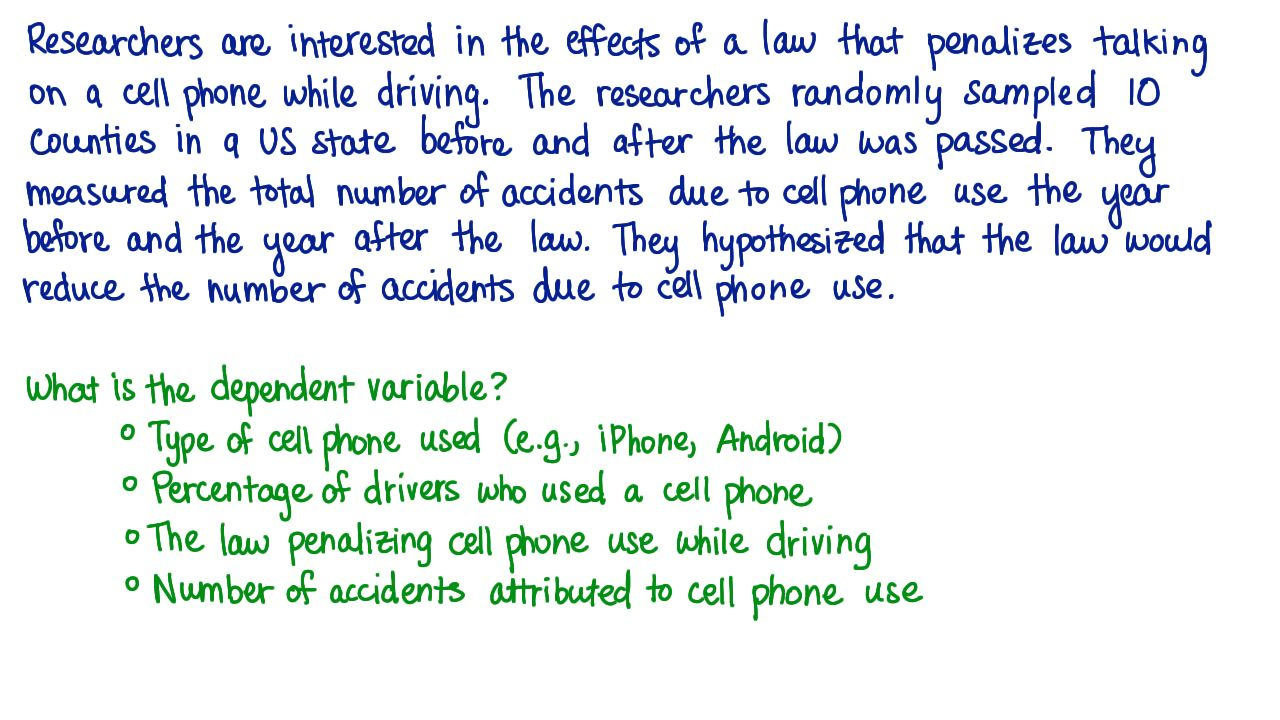 Researchers are interested in the effects of a law that penalizes talking
on a cell phone while driving. The researchers randomly sampled 10
counties in a US state before and after the law was passed. They
measured the total number of accidents due to cell phone use the year
before and the year after the law. They hypothesized that the law would
reduce the number of accidents due to cell phone use.
What is the dependent variable?
○ Type of cell phone used (e.g., iPhone, Android)
○ Percentage of drivers who used a cell phone
○ The law penalizing cell phone use while driving
○ Number of accidents attributed to cell phone use